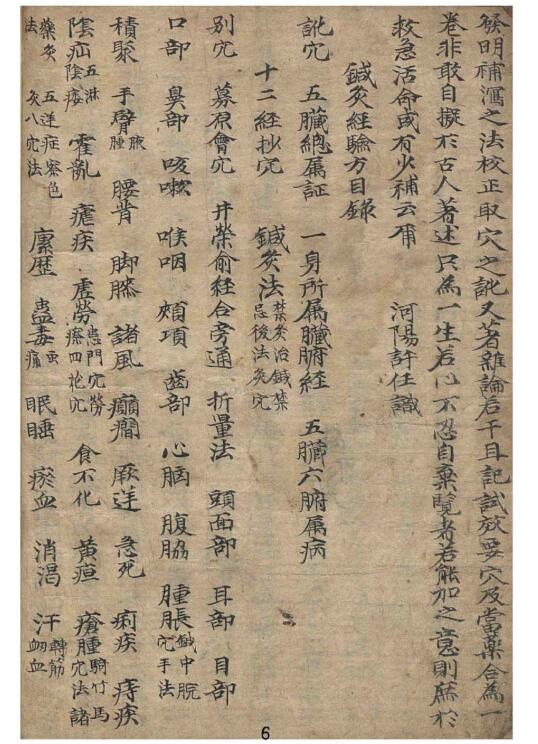 發明補瀉之法校正取穴之訛又著雜論若干且記試效要穴及當藥合為一
卷非敢自擬於古人著述只為一生苦心不忍自棄覽者若能加之意則庶於
救急活命或有少補云爾　河陽許任識
鍼灸經驗方目錄
訛穴　五臟總屬証　一身所屬臟腑経　五臟六腑属病
十二経抄穴　鍼灸法　禁灸治鍼禁　忌後法灸穴
別穴　募原會穴　井榮俞経合旁通　折量法　頭面部　耳部　目部
口部　鼻部　咳嗽　喉咽　頰項　齒部　心胸　腹脇　腫脹　鍼中脘穴手法
積聚　手臂　腋腫　腰背　脚膝　諸風　癲癇　厥逆　急死　痢疾　痔疾
陰疝　五淋陰痿　霍亂　瘧疾　虛勞　患門穴勞瘵四花穴　食不化　黃疸　瘡腫　騎竹馬穴法諸
藥灸法　五逆症察色灸八穴法　瘰歷　蠱毒　虫痛　眠睡　瘀血　消渴　汗　轉筋衂血
6